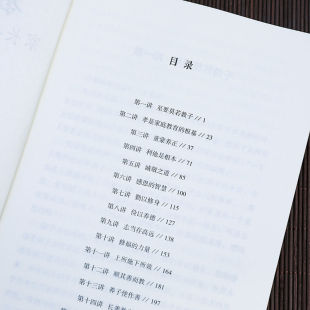 目录
第一讲 至要莫若教子 // 1
第二讲 孝是家庭教育的根基 // 23
第三讲 童蒙养正 // 37
第四讲 利他是根本 // 71
第五讲 诚敬之道 // 85
第六讲 感恩的智慧 // 100
第七讲 勤以修身 // 115
第八讲 俭以养德 // 127
第九讲 志当存高远 // 138
第十讲 修福的力量 // 153
第十一讲 上所施下所效 // 164
第十二讲 顺其善而教 // 181
第十三讲 养子使作善 // 197
第十四讲 长善